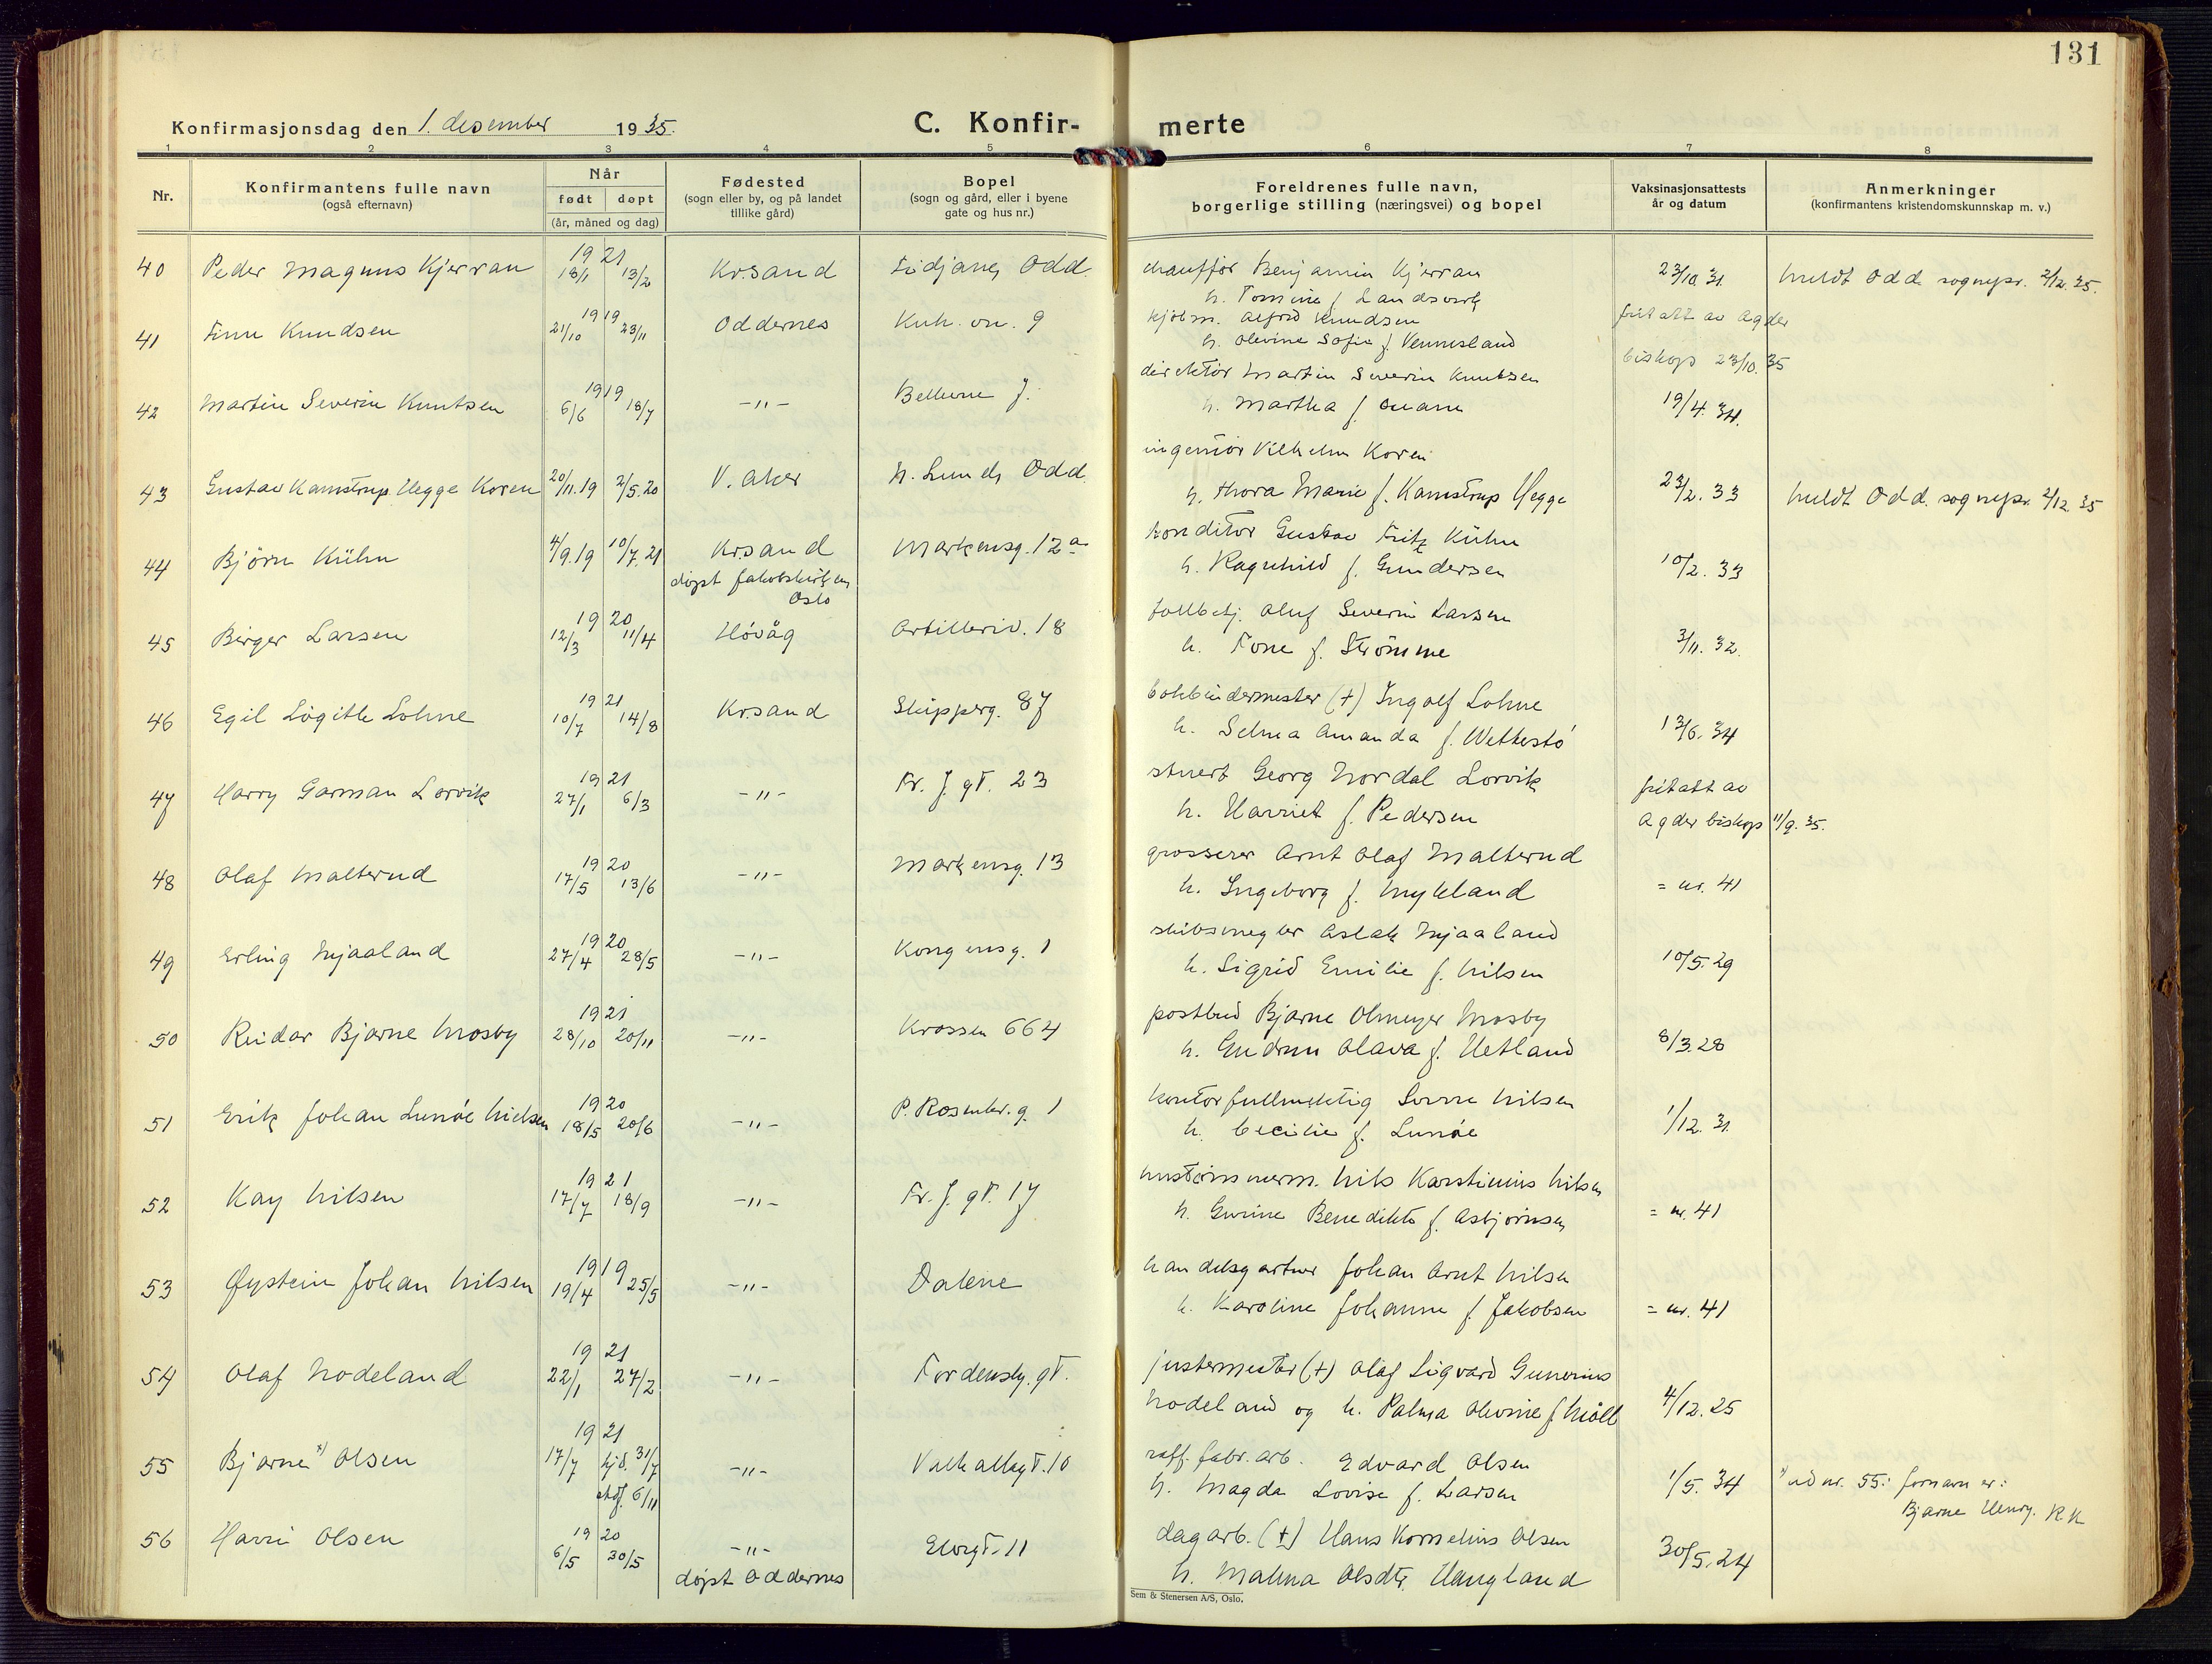 131
Konfirmasjonsdag den 1. desember 1935.
C. Konfir- merte
1 2 3 4 5 6 7 8
Nr.
Konfirmantens fulle navn
(også efternavn)
Når
født døpt
(år, måned og dag)
Fødested
(sogn eller by, og på landet
tillike gård)
Bopel
(sogn og gård, eller i byene
gate og hus nr.)
Foreldrenes fulle navn,
borgerlige stilling (næringsvei) og bopel
Vaksinasjonsattests
år og datum
Anmerkninger
(konfirmantens kristendomskunnskap m. v.)
40 Peder Magnus Kjerran 1921 18/1 13/2 Kr.sand Odd. chauffør Benjamin Kjerran 23/10.31. meldt Odd. sognepr. 2/12.35.
h. Tomine f. Landsverk
41 Finn Knudsen 1919 21/10 23/11 Oddernes Kuh. vn. 9 kjøbm. Alfred Knudsen fritatt av Agder
h. Olevine Sofie f. Vennesland biskop 23/10.35
42 Martin Severin Knutsen 1919 6/6 18/7 -"- Bellevue direktør Martin Severin Knutsen
h. Martha f. 19/4.34.
43 Gustav Kamstrup Hegge Koren 20/11.19 2/5.20 V. Aker N. Lund, Odd. ingeniør Vilhelm Koren
h. Thora Marie f. Kamstrup Hegge 23/2.33 meldt Odd. sognepr. 2/12.35
44 Bjørn Kühn 4/9.19 10/7.21 Kr.sand Markensg. 12a konditor Gustav Fritz Kühn
døpt Jakobskirken Oslo h. Ragnhild f. Gundersen 10/2.33
45 Birger Larsen 1920 12/3 11/4 Høvåg Artilleriv. 18 tollbetj. Oluf Severin Larsen
h. Tone f. Strömme 3/11.32.
46 Egil Lohne 1921 10/7 14/8 Kr.sand Skipperg. 87 bokbindermester (+) Ingolf Lohne
h. Selma Amanda f. 13/6.34
47 Harry Garman Lorvik 1921 27/1 6/3 -"- Fr. J. gt. 23 stuert Georg Nordal Lorvik fritatt av
h. Harriet f. Pedersen Agder biskop 11/9.35.
48 Olaf Malterud 1920 17/5 13/6 -"- Markensg. 13 grosserer Arnt Olaf Malterud
h. Ingeborg f. Mykland = nr. 41
49 Erling Mjaaland 1920 27/4 28/5 -"- Kongensg. 1 skibsmegler Aslak Mjaaland
h. Sigrid Emilie f. Nilsen 10/5.29
50 Reidar Bjarne Mosby 1921 28/10 20/11 -"- Krossen 664 postbud Bjarne Olmeyer Mosby
h. Gudrun Olava f. Hetland 8/3.28
51 Erik Johan Lunöe Nielsen 1920 18/5 20/6 -"- P. Rosenkr. g. 1 kontorfullmektig Sverre Nilsen
h. Cecilie f. Lunöe 1/12.31.
52 Kay Nilsen 1921 17/7 18/9 -"- Fr. J. gt. 17 hustømmerm. Nils Karstinius Nilsen
h. Gurine Benedikte f. Asbjørnsen = nr. 41
53 Øystein Johan Nilsen 1919 19/4 25/5 -"- Dalene handelsgartner Johan Arnt Nilsen
h. Karoline Johanne f. Jakobsen = nr. 41
54 Olaf Nodeland 1921 22/1 27/2 -"- Tordenskj. gt. justermester (+) Olaf Sigvard Gunerius
Nodeland og h. Palma Olevine f. Moll 4/12.25
55 Bjarne x) Olsen 1921 17/7 hjd. 31/7 -"- Valhallagt. 10 raff. fabr. arb. Edvard Olsen
stadf. 6/11 h. Magda Lovise f. Larsen 1/5.34 x) ad nr. 55: fornavn er:
Bjarne Henry. R.K
56 Harri Olsen 1920 6/5 30/5 -"- Elvegt. 11 dagarb. (+) Hans Kornelius Olsen
døpt Oddernes h. Malena Olsdtr. Haugland 30/5.24
Sem & Stenersen A/S, Oslo.